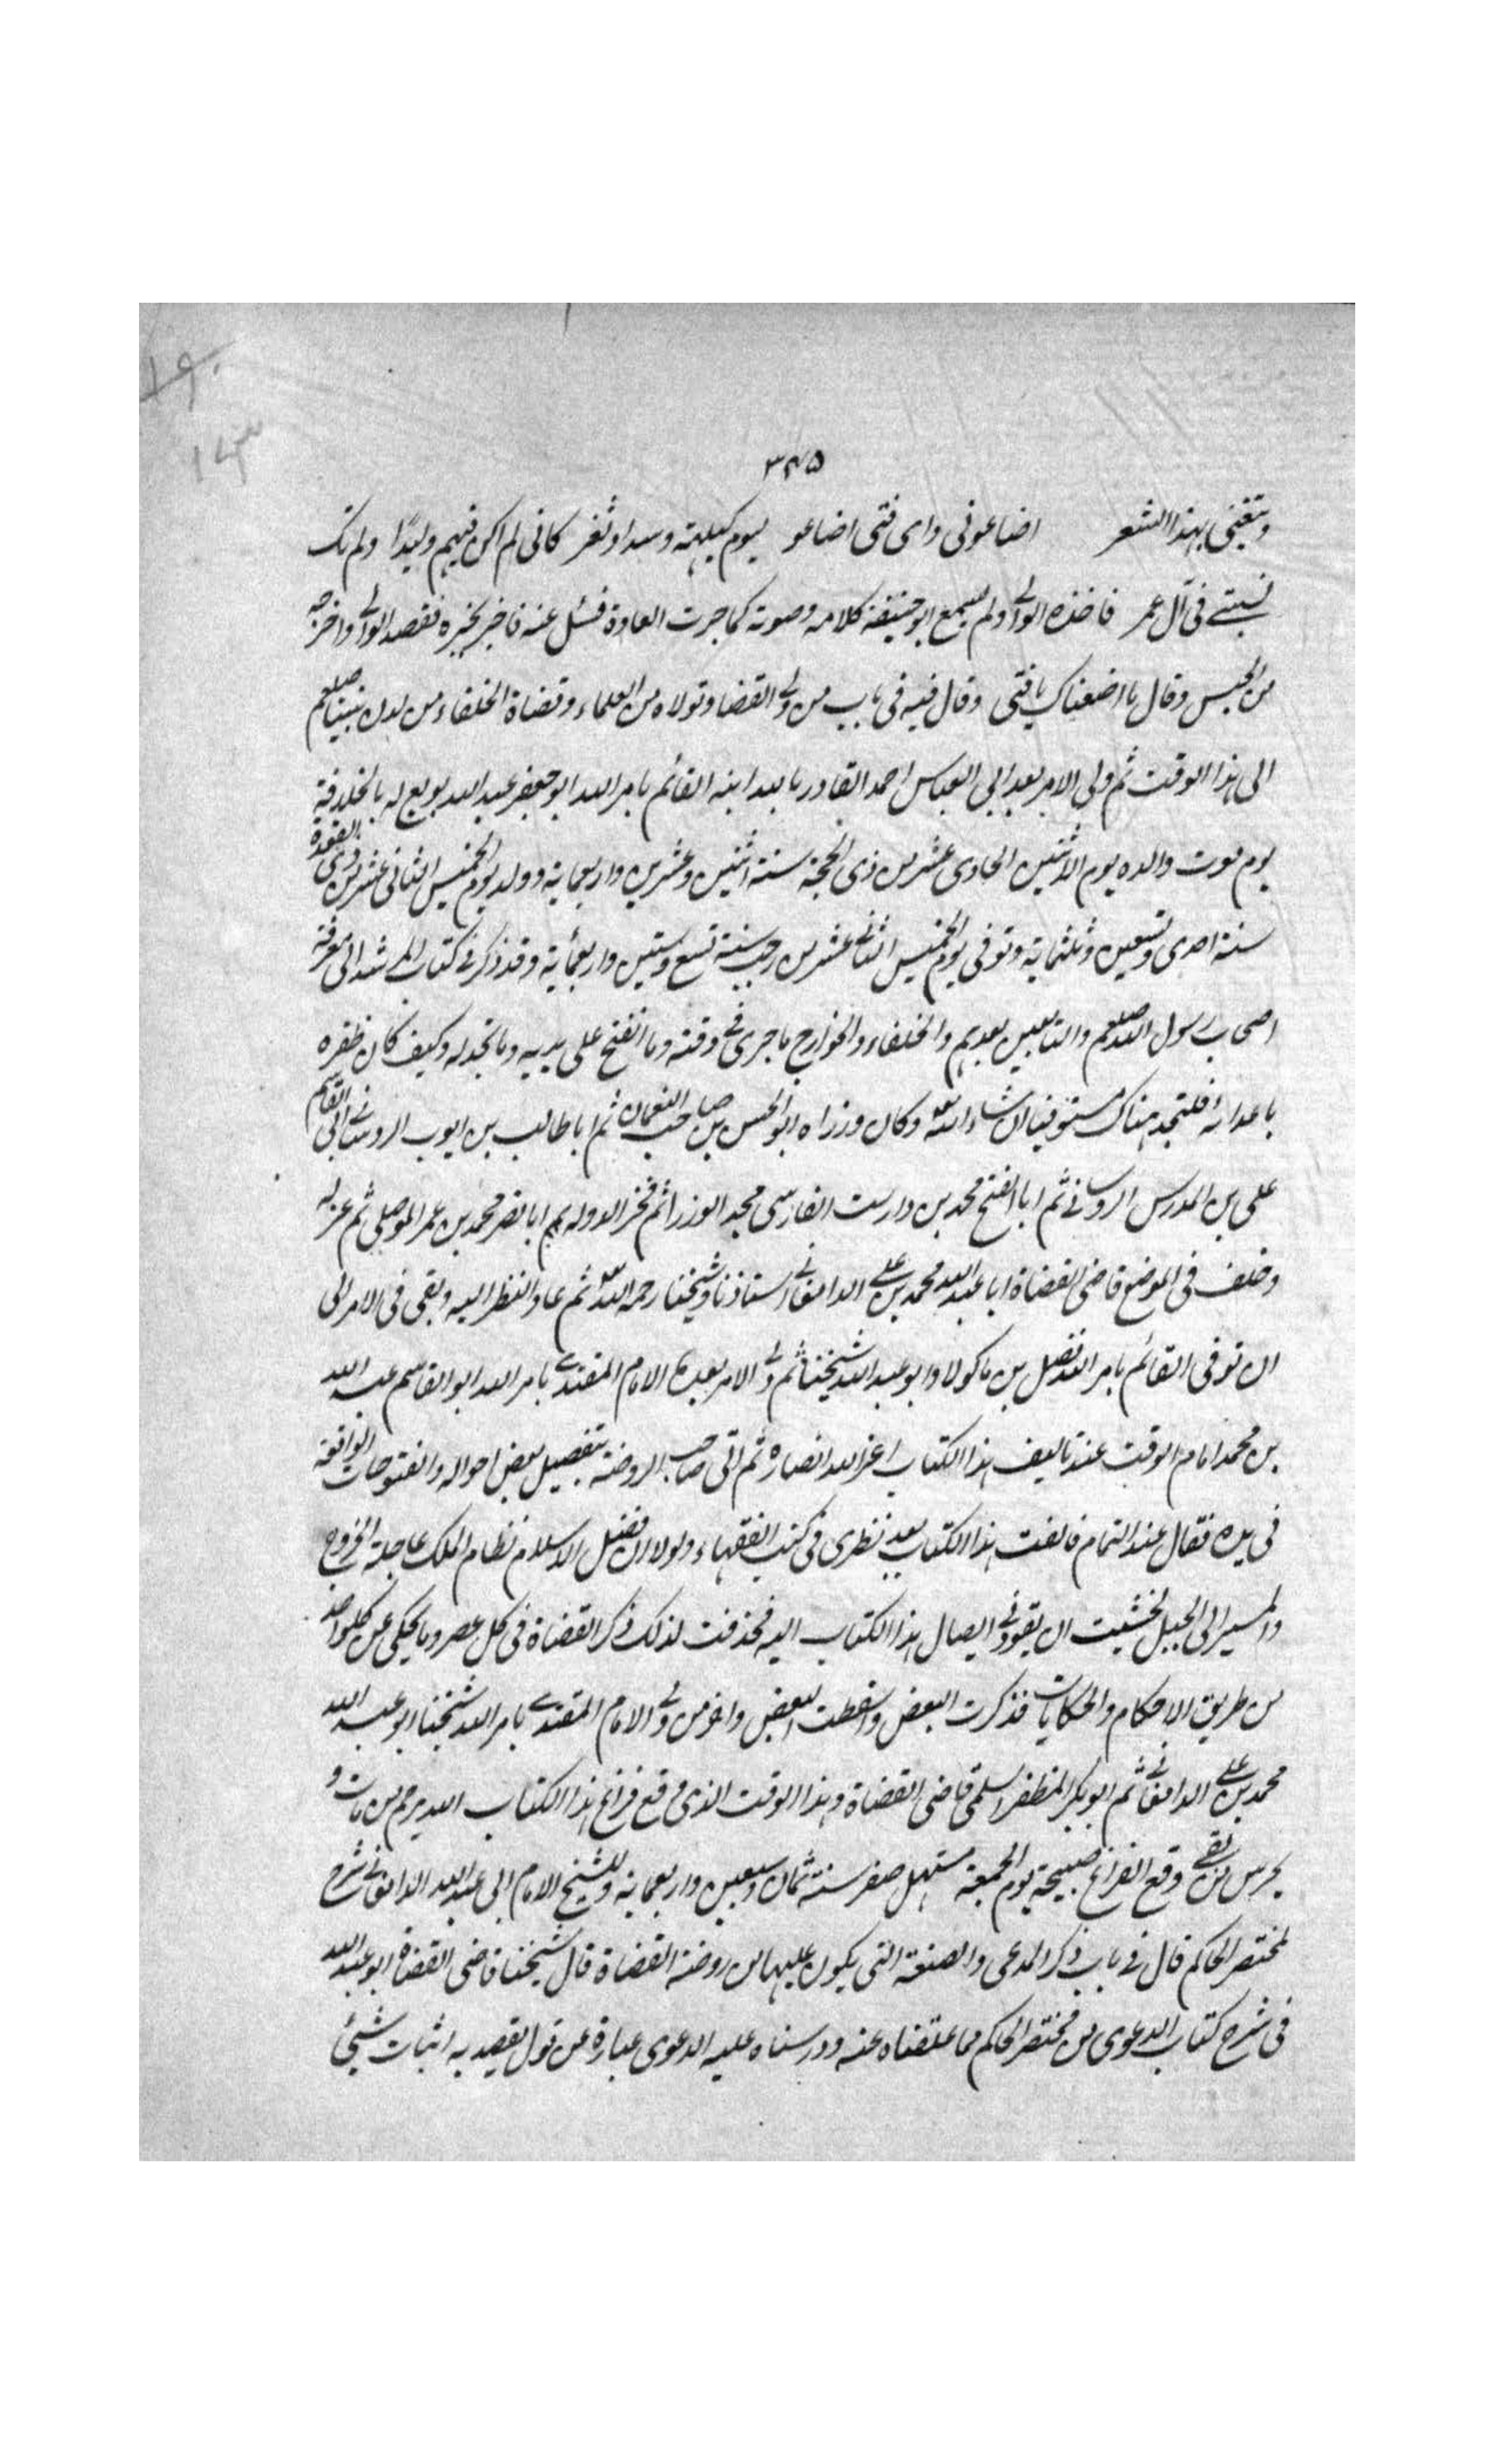 ١٩٠
١٤٣
٣٤٥
ويتغنى بهذا الشعر اضاعونى واى فتى اضاعو ليوم كيلهة وسداد ثغر كانى لم اكن فيهم وليدًا ولم تك
نسبتے فى آل عمر فاخذه الوالے ولم يسمع ابو حنيفة كلامه وصوته كما جرت العادة فسئل عنه فاخبر بخبره فقصد الوالے واخرجه
من الحبس وقال ما اضعناك يا فتى وقال فيه فى باب من ولے القضا وتولاه من العلماء وقضاة الخلفاء من لدن نبينا صلعم
الى هذا الوقت ثم ولى الامر بعد ابى العباس احمد القادر بالله ابنه القائم بامر الله ابو جعفر عبد الله بويع له بالخلافة
يوم موت والده يوم الاثنين الحادى عشر من ذى الحجة سنة اثنين وعشرين واربعماية وولد يوم الخميس الثانى عشر من ذى القعدة
سنة احدى وتسعين وثلثماية وتوفى يوم الخميس الثانے عشر من رجب سنة تسع وستين واربعمأية وقد ذكر فے كتاب المرشد الى معرفة
اصحاب رسول الله صلعم والتابعين بعدهم والخلفاء والخوارج ما جرى فے وقته وما انفتح على يديه وما تجدد له وكيف كان ظفره
باعدائه فلتجد هناك مستوفيا ان شاء الله وكان وزراه ابو الحسن بن صاحب النعمان ثم ابا طالب بن ايوب ثم ابى القاسم
على بن المدرس الروسانے ثم ابا الفتح محمد بن دارست الفارسى مجد الوزرا ثم فخر الدوله ابا نصر محمد بن عمر الموصلى ثم عزله
وخلف فى الموضع قاضى القضاة ابا عبد الله محمد بن علے الدامغانے استاذنا وشيخنا رحمه الله ثم عاد النظر اليه وبقى فى الامر الى
ان توفى القائم بامر الله فضل بن ماكولا وابو عبد الله شيخنا ثم ولے الامر بعده الامام المقتدے بامر الله ابو القاسم عبد الله
بن محمد امام الوقت عند تاليف هذا الكتاب اعز الله انصاره ثم اتى صاحب الروضة بتفصيل بعض احواله والفتوحات الواقعة
فى يده فقال عند التمام فالفت هذا الكتاب بعد نظرى فى كتب الفقهاء ولولا ان فضل الاسلام نظام الملك عاجله الخروج
والمسير الى الجبل لخشيت ان يفوتنے ايصال هذا الكتاب اليه فحذفت لذلك ذكر القضاة فى كل عصر وما يحكى عن كل واحد
من طريق الاحكام والحكايات فذكرت البعض واسقطت البعض واخر من ولے الامام المقتدے بامر الله شيخنا ابو عبد الله
محمد بن علے الدامغانے ثم ابو بكر المظفر السلمى قاضى القضاة وهذا الوقت الذى وقع فراغ هذا الكتاب الله يرحم من مات و
يحرس من بقے وقع الفراغ صبيحة يوم الجمعة مستهل صفر سنة ثمان وسبعين واربعماية وللشيخ الامام ابى عبد الله الدامغانے شرح
لمختصر الحاكم قال فے باب ذكر المدعى والصنعة التى يكون عليها من روضة القضاة قال شيخنا قاضى القضاة ابو عبد الله
فى شرح كتاب الدعوى من مختصر الحاكم مما علقناه عنه ودرسناه عليه الدعوى عبارة عن قول يقصد به اثبات شيئ